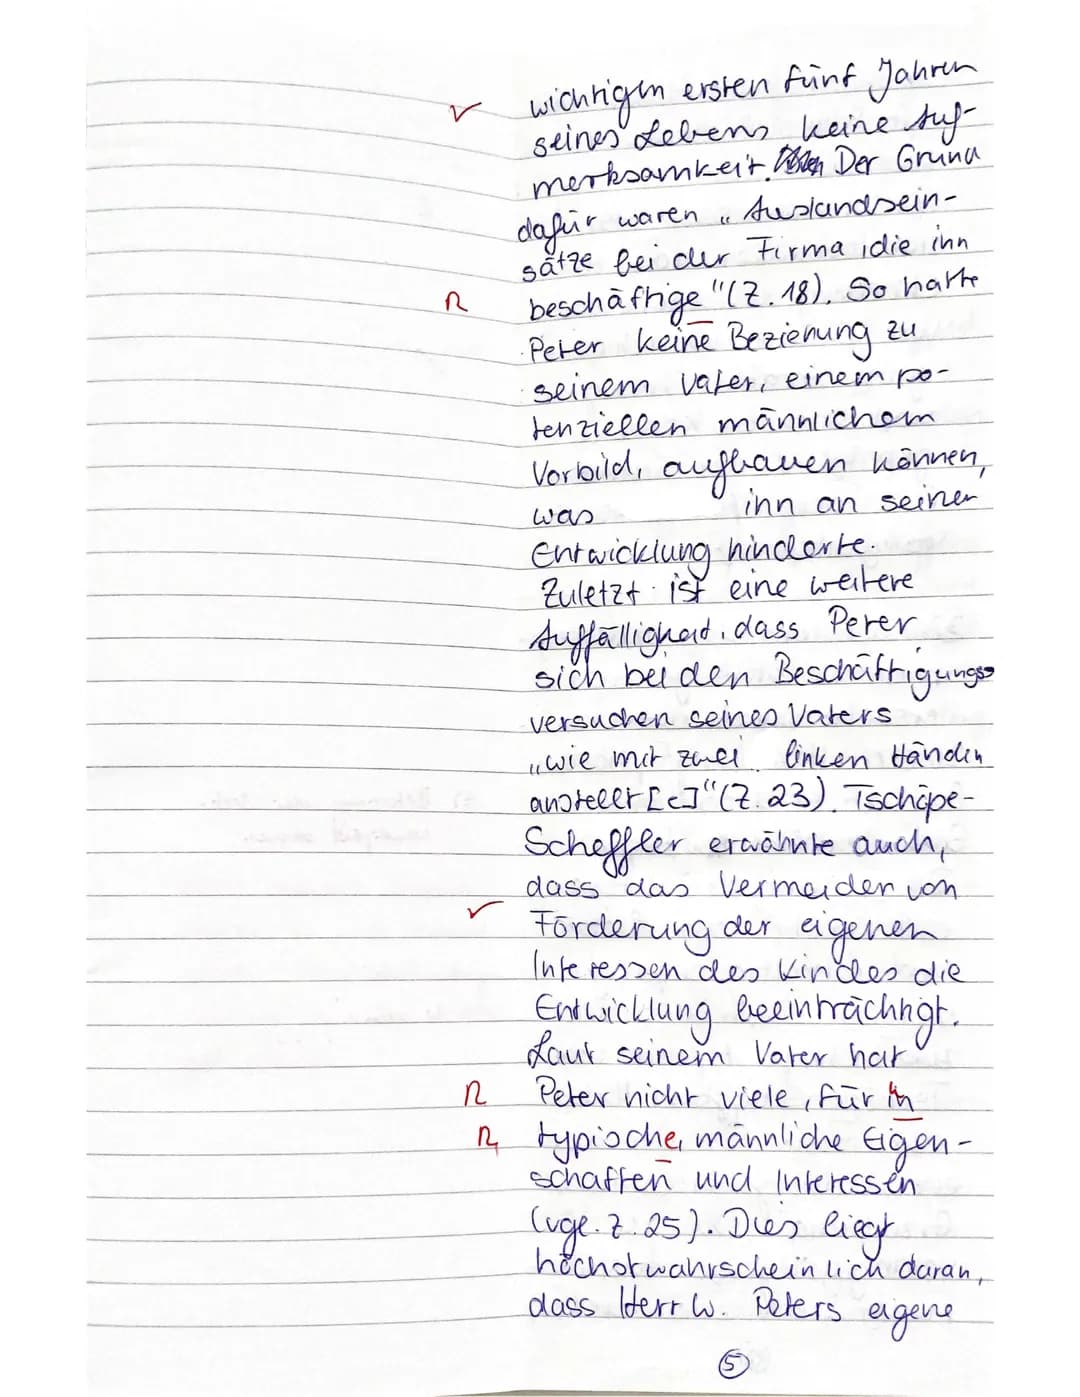 wichtigen ersten fünf Jahren
seines Lebens keine Auf-
merksamkeit. Der Grund
dafür waren „Auslandsein-
sätze bei der Firma, die ihn
beschäftige"(Z. 18). So hatte
Peter keine Beziehung zu
seinem Vater, einem po-
tenziellen männlichem
Vorbild, aufbauen können,
was ihn an seiner
Entwicklung hinderte.
Zuletzt ist eine weitere
Auffälligkeit, dass Peter
sich bei den Beschäftigungs-
versuchen seines Vaters
„wie mit zwei linken Händen
anstellt[e]"(Z. 23). Tschöpe-
Scheffler erwähnte auch,
dass das Vermeiden von
Förderung der eigenen
Interessen des Kindes die
Entwicklung beeinträchtigt.
Laut seinem Vater hat
R Peter nicht viele, für ihn
R typische, männliche Eigen-
schaften und Interessen
(vgl. Z. 25). Dies liegt
höchstwahrscheinlich daran,
dass Herr W. Peters eigene
5